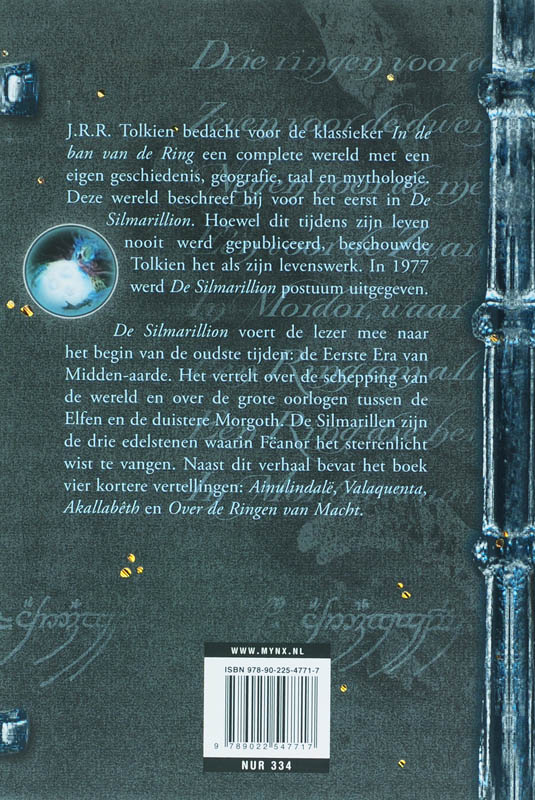 Drie ringen voor d
Zeven voor de dwer
J.R.R. Tolkien bedacht voor de klassieker In de
ban van de Ring een complete wereld met een
eigen geschiedenis, geografie, taal en mythologie.
Deze wereld beschreef hij voor het eerst in De
Silmarillion. Hoewel dit tijdens zijn leven
nooit werd gepubliceerd, beschouwde
Tolkien het als zijn levenswerk. In 1977
werd De Silmarillion postuum uitgegeven.
Mordor, waar
De Silmarillion voert de lezer mee naar
het begin van de oudste tijden: de Eerste Era van
Midden-aarde. Het vertelt over de schepping van
de wereld en over de grote oorlogen tussen de
Elfen en de duistere Morgoth. De Silmarillen zijn
de drie edelstenen waarin Fëanor het sterrenlicht
wist te vangen. Naast dit verhaal bevat het boek
vier kortere vertellingen: Ainulindalë, Valaquenta,
Akallabêth en Over de Ringen van Macht.
WWW.MYNX.NL
ISBN 978-90-225-4771-7
9 789022 547717
NUR 334